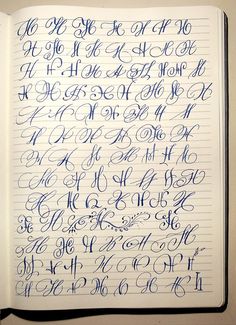 H H H H H H H
H H H H H H H H
H H H H H H H H
H H H H H H H
H H H H H H H H
H H H H H H H
H H H H H H H
H H H H H H H
H H H H H H H H
H H H H
H H H H H H
H H H H H H H
H H H H H H H H